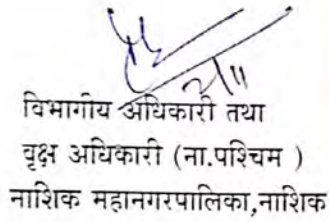 विभागीय अधिकारी तथा
वृक्ष अधिकारी (ना.पश्चिम )
नाशिक महानगरपालिका,नाशिक